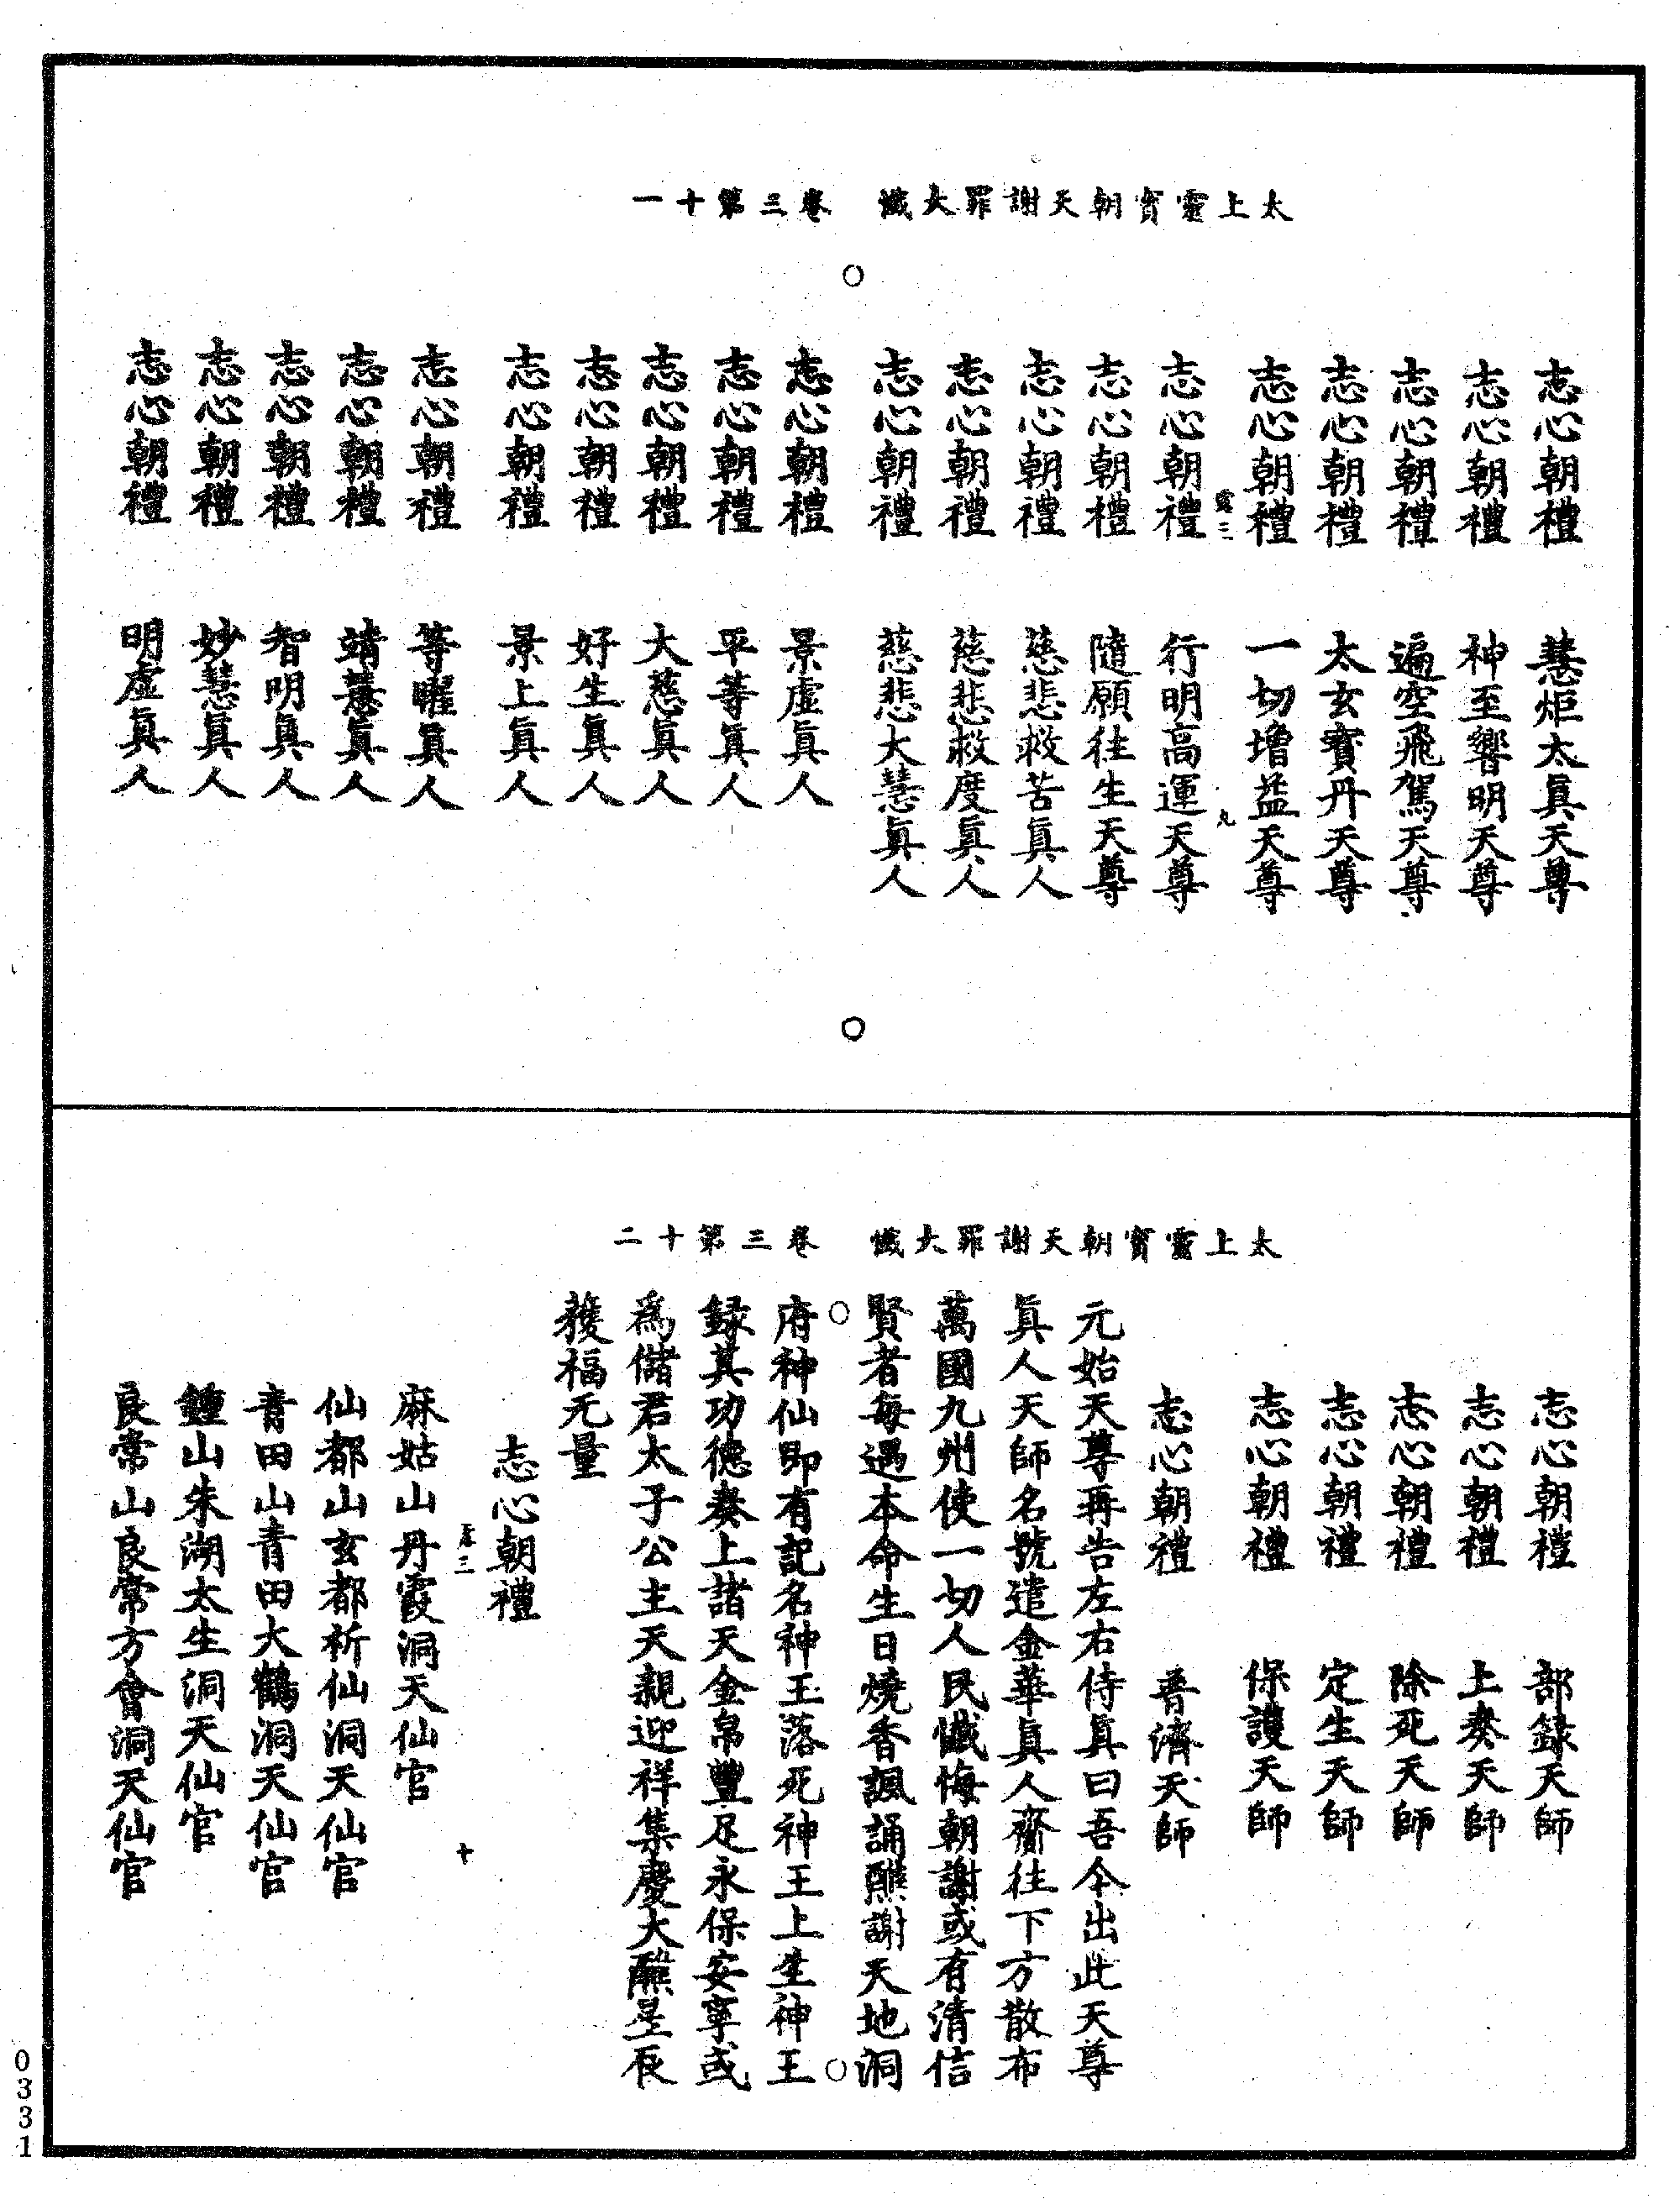 太上靈寳朝天謝罪大懺　卷三第十一
志心朝禮　慧炬太眞天尊
志心朝禮　神至響明天尊
志心朝禮　遍空飛駕天尊
志心朝禮　太玄寳丹天尊
志心朝禮　一切增益天尊
九
志心朝禮　行明高運天尊
志心朝禮　隨願往生天尊
志心朝禮　慈悲救苦眞人
志心朝禮　慈悲救度眞人
志心朝禮　慈悲大慧眞人
志心朝禮　景虛眞人
志心朝禮　平等眞人
志心朝禮　大慈眞人
志心朝禮　好生眞人
志心朝禮　景上眞人
志心朝禮　等曜眞人
志心朝禮　靖慧眞人
志心朝禮　智明眞人
志心朝禮　妙慧眞人
志心朝禮　明虛眞人
太上靈寳朝天謝罪大懺　卷三第十二
志心朝禮　部録天師
志心朝禮　上奏天師
志心朝禮　除死天師
志心朝禮　定生天師
志心朝禮　保護天師
志心朝禮　普濟天師
元始天尊再告左右侍眞曰吾今出此天尊
眞人天師名號遣金華眞人齎往下方散布
萬國九州使一切人民懺悔朝謝或有清信
賢者每遇本命生日燒香諷誦醮謝天地洞
府神仙即有記名神王落死神王上生神王
録其功德奏上諸天金帛豐足永保安寧或
爲儲君太子公主天親迎祥集慶大醮星辰
獲福无量
志心朝禮
十
麻姑山丹霞洞天仙官
仙都山玄都祈仙洞天仙官
青田山青田大鶴洞天仙官
鍾山朱湖太生洞天仙官
良常山良常方會洞天仙官
0331